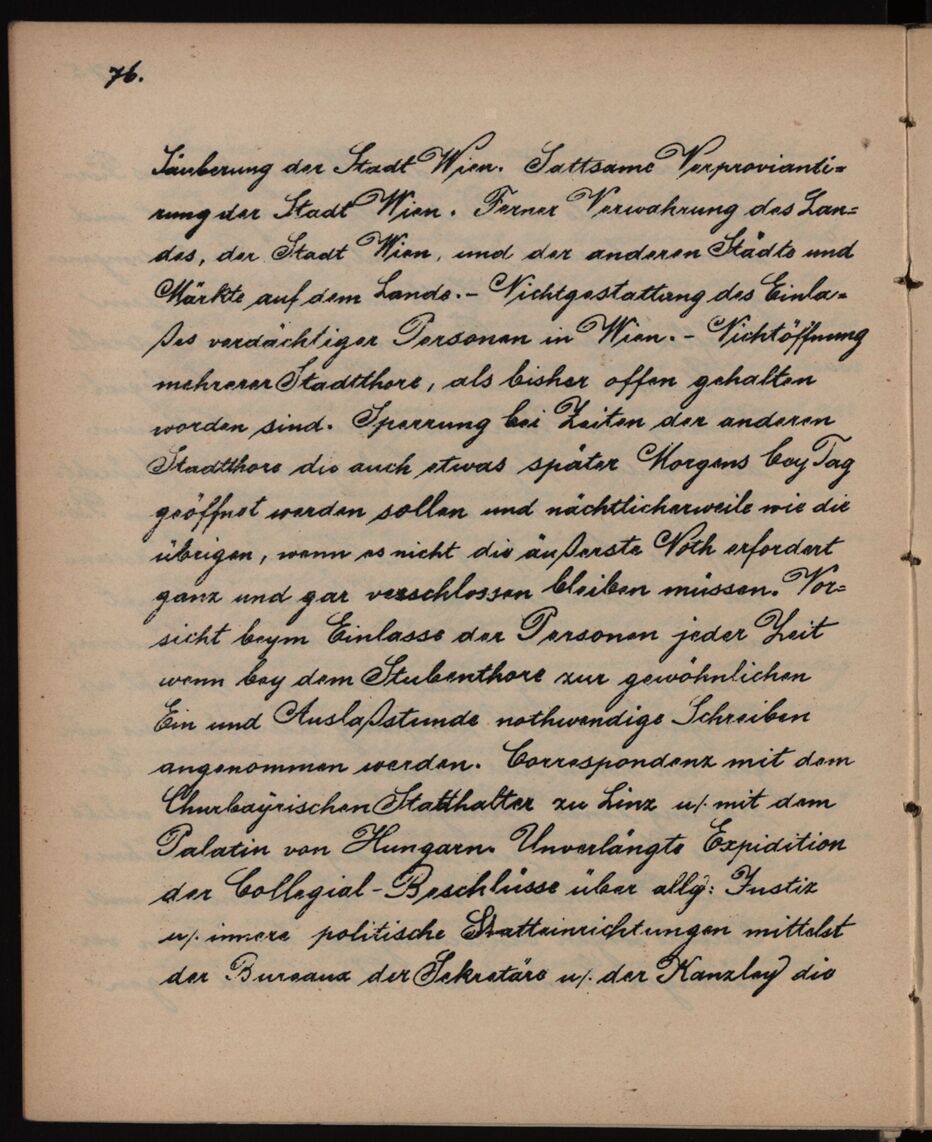 76.
Säuberung der Stadt Wien. Sattsame Verprovianti=
rung der Stadt Wien. Ferner Verwahrung des Lan=
des, der Stadt Wien, und der anderen Städte und
Märkte auf dem Lande. - Nichtgestattung des Einla=
ßes verdächtiger Personen in Wien. - Nichtöffnung
mehrerer Stadtthore, als bisher offen gehalten
worden sind. Sperrung bei Zeiten der anderen
Stadtthore die auch etwas später Morgens bey Tag
geöffnet werden sollen und nächtlicherweile wie die
übrigen, wenn es nicht die äußerste Noth erfordert
ganz und gar verschlossen bleiben müssen. Vor=
sicht beym Einlasse der Personen jeder Zeit
wenn bey dem Stubenthore zur gewöhnlichen
Ein und Auslaßstunde nothwendige Schreiben
angenommen werden. Correspondenz mit dem
Churbayrischen Statthalter zu Linz u/. mit dem
Palatin von Hungarn. Unverlängte Expidition
der Collegial-Beschlüsse über allg: Justiz
u/. innere politische Statteinrichtungen mittelst
der Bureaux der Sekretäre u/. der Kanzley die